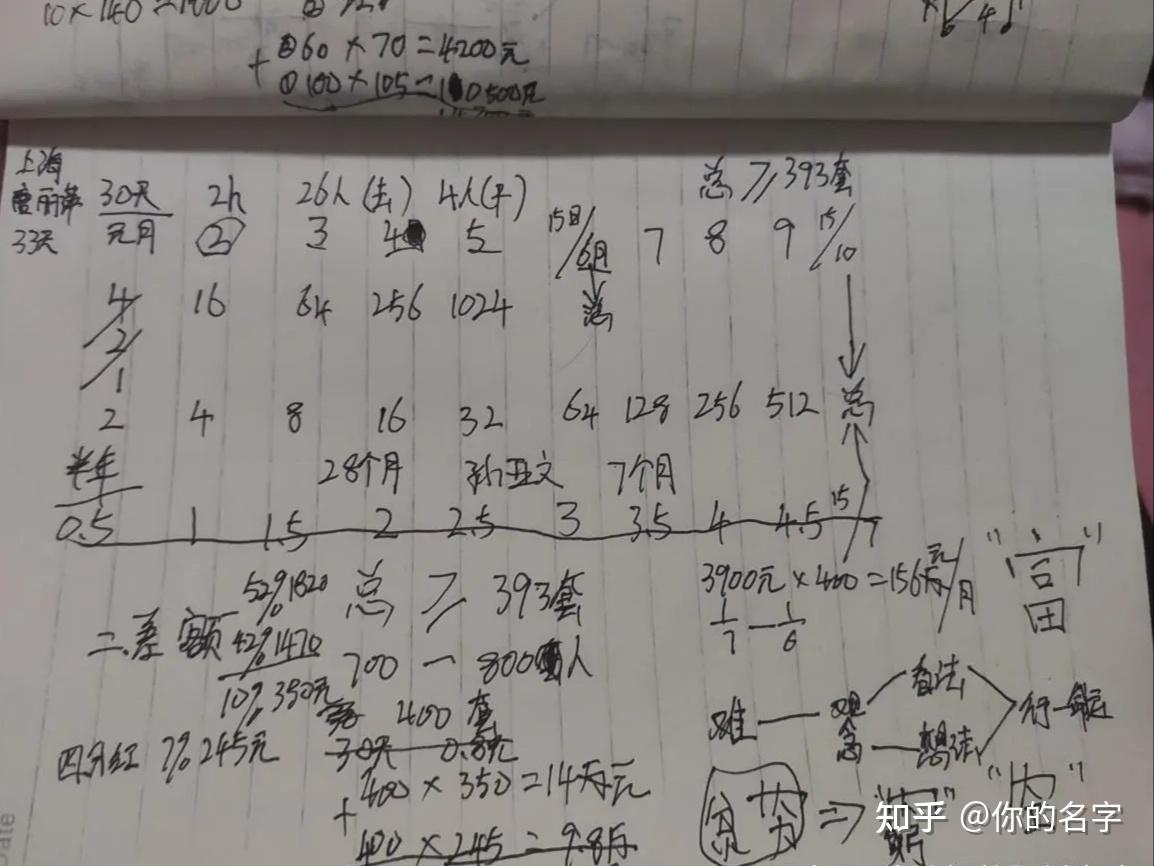 10×140=1400
+ ②60×70=4200元
①100×105=10500元
上海 30天 2h 26人(去) 4人(子) 总≥393套
33天 元月 ② 3 4 5 15日/6月 7 8 9 15/10
4 16 64 256 1024 总
2
1
2 4 8 16 32 64 128 256 512 总
半年 28个月 孙亚文 7个月
0.5 1 1.5 2 2.5 3 3.5 4 4.5 15/7
52%1820 总≥393套 3900元×400=156万元/月 "富"
二.差额 42%1470 700—800人 1/7—1/6
10%350元 400套
难—观念—看法 想法 行—命运
四分红 7%245元 30天
400×350=14万元
+ 400×245=9.8万
贫 ⇒ "穷" "内"
知乎 @你的名字
Date